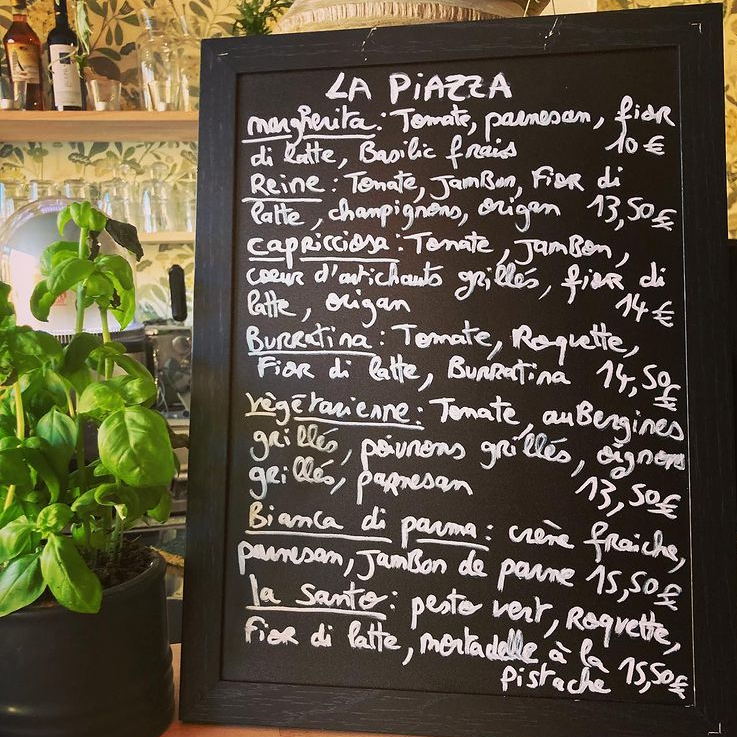 LA PIAZZA
margherita : Tomate, parmesan, fior
di latte, Basilic frais 10 €
Reine : Tomate, Jambon, Fior di
latte, champignons, origan 13,50€
capricciosa : Tomate, Jambon,
coeur d'artichauts grillés, fior di
latte, origan 14 €
Burratina : Tomate, Roquette,
Fior di latte, Burratina 14,50€
végétarienne : Tomate, aubergines
grillés, poivrons grillés, oignons
grillés, parmesan 13,50€
Bianca di parma : crème fraiche,
parmesan, Jambon de parme 15,50€
la santo : pesto vert, Roquette,
Fior di latte, mortadelle à la 15,50€
pistache